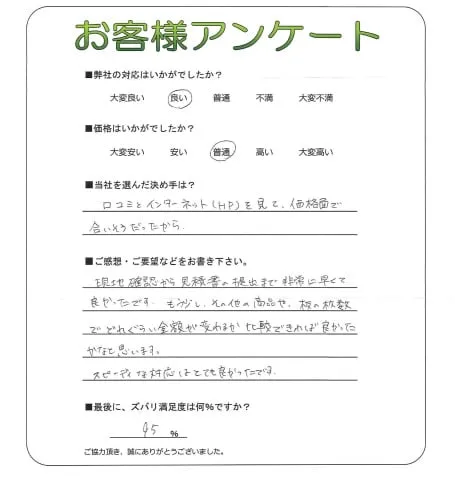 お客様アンケート
■弊社の対応はいかがでしたか?
大変良い 良い 普通 不満 大変不満
■価格はいかがでしたか?
大変安い 安い 普通 高い 大変高い
■当社を選んだ決め手は?
口コミとインターネット(HP)を見て、価格面で
合いそうだったから.
■ご感想・ご要望などをお書き下さい。
現地確認から見積書の提出まで非常に早くて
良かったです. もう少し、その他の商品や、板の枚数
でどれぐらい金額が変わるか比較できれば良かった
かなと思います。
スピーディな対応はとても良かったです.
■最後に、ズバリ満足度は何%ですか?
95 %
ご協力頂き、誠にありがとうございました。